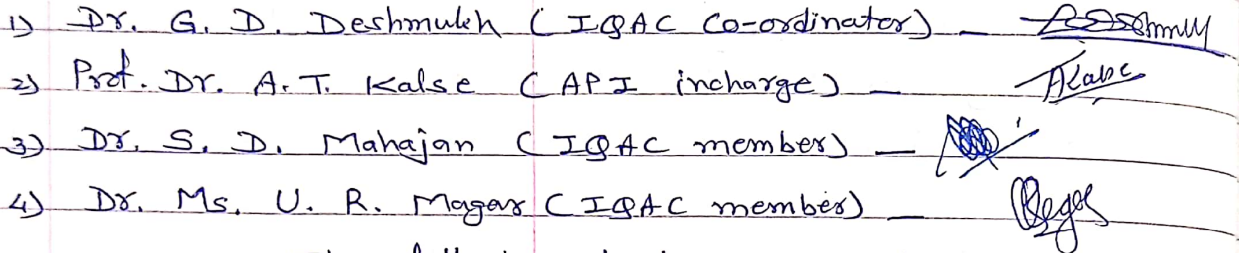 1) Dr. G. D. Deshmukh (IQAC Co-ordinator) –
2) Prof. Dr. A. T. Kalse (API incharge) –
3) Dr. S. D. Mahajan (IQAC member) –
4) Dr. Ms. U. R. Magar (IQAC member) –